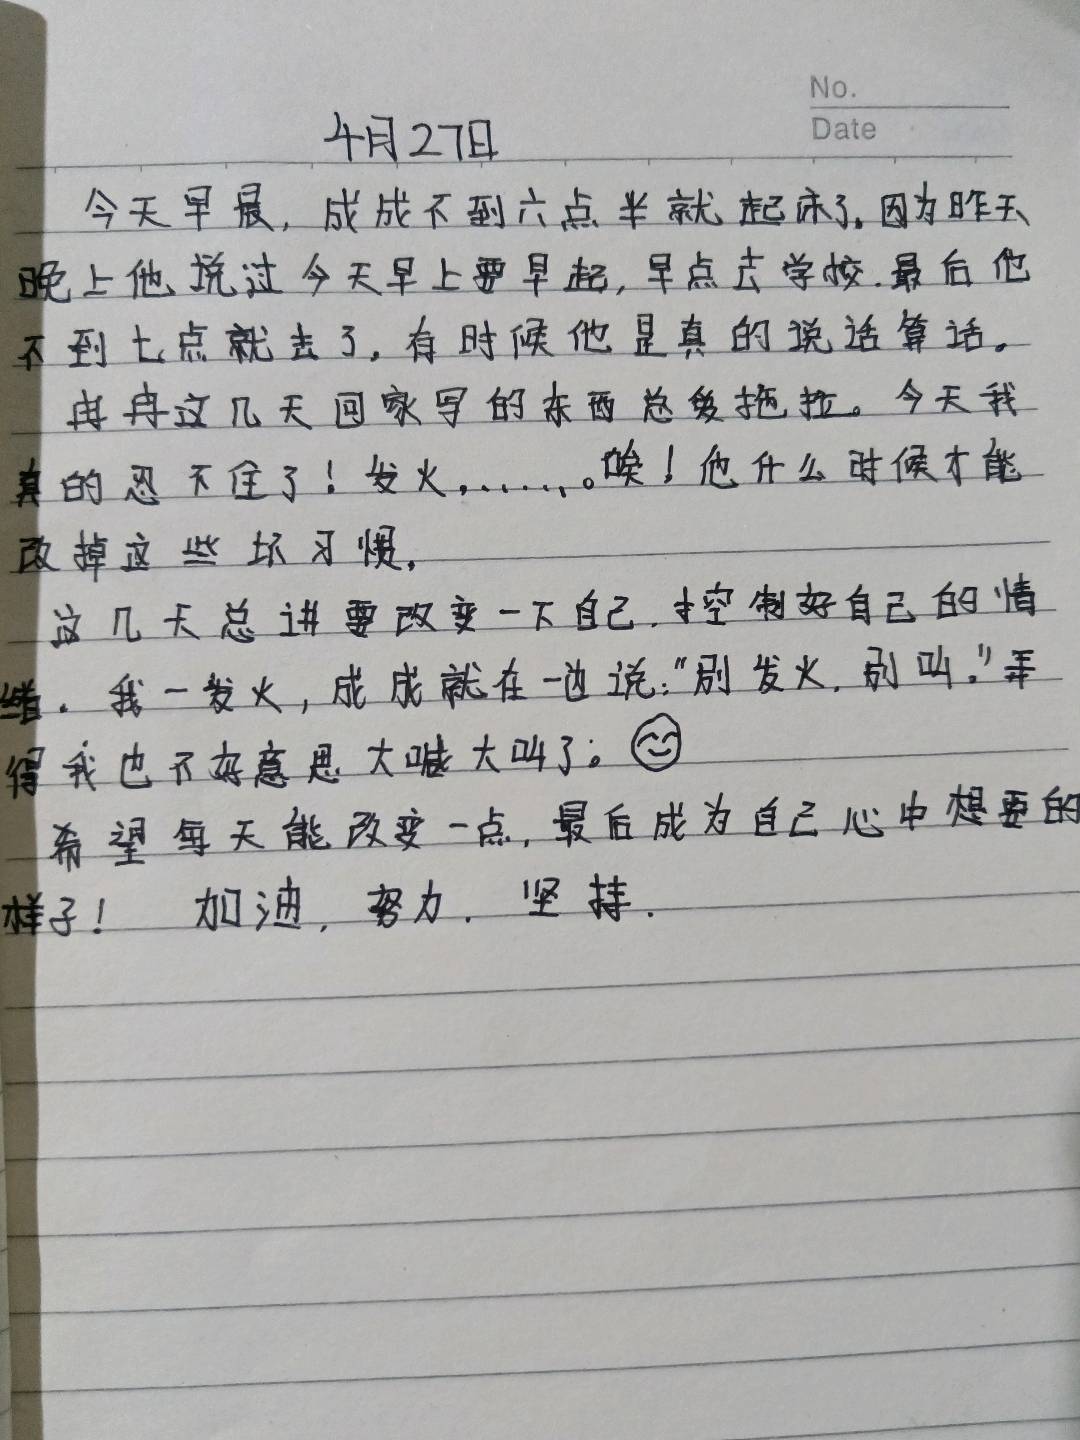 No.
Date
4月27日
今天早晨,成成不到六点半就起床了。因为昨天
晚上他说过今天早上要早起,早点去学校.最后他
不到七点就去了。有时候他是真的说话算话。
冉冉这几天回家写的东西总是拖拉。今天我
真的忍不住了!发火,......。唉!他什么时候才能
改掉这些坏习惯.
这几天总讲要改变一下自己.控制好自己的情
绪.我一发火,成成就在一边说:"别发火.别叫。"弄
得我也不好意思大喊大叫了。
希望每天能改变一点,最后成为自己心中想要的
样子! 加油.努力.坚持.